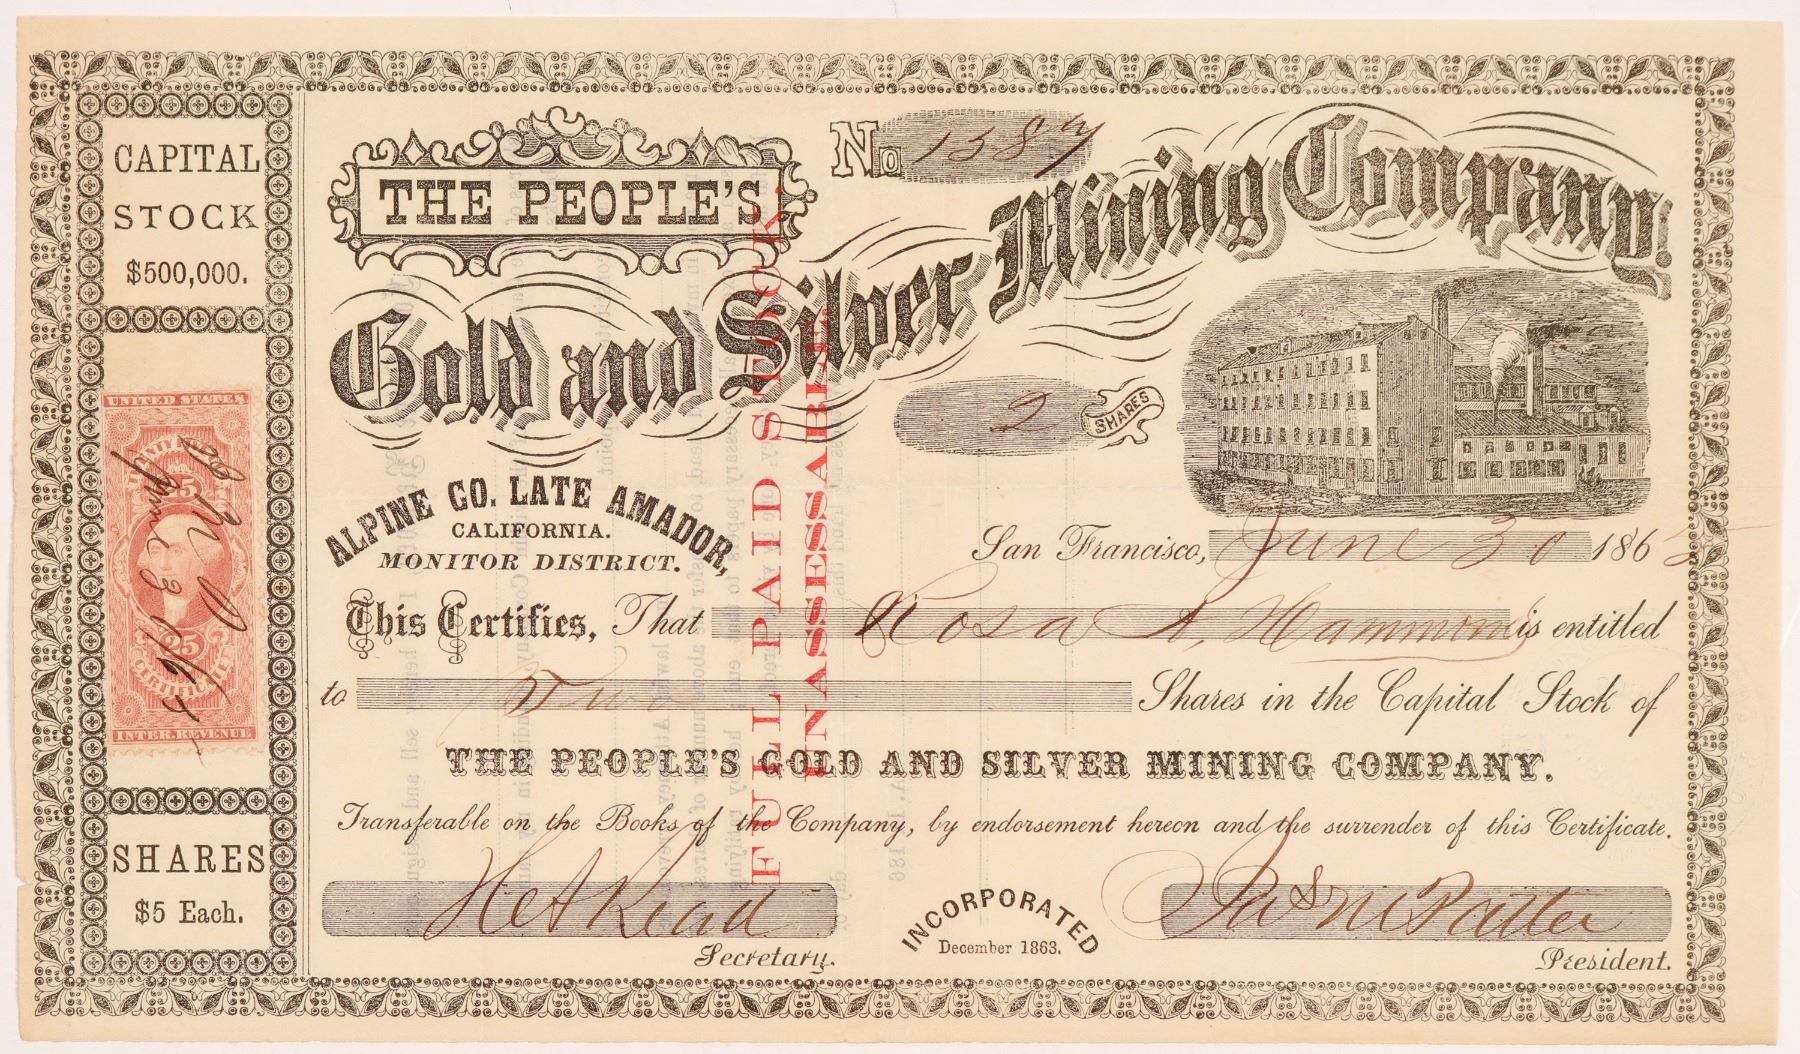 CAPITAL
STOCK
$500,000.
UNITED STATES
25
25
CERTIFICATE
INTER. REVENUE
June 30
SHARES
$5 Each.
No 1587
THE PEOPLE'S
Gold and Silver Mining Company.
2 SHARES
ALPINE CO. LATE AMADOR,
CALIFORNIA.
MONITOR DISTRICT.
San Francisco, June 30 1865
This Certifies, That Rosa A. Hammond is entitled
to Two Shares in the Capital Stock of
THE PEOPLE'S GOLD AND SILVER MINING COMPANY.
Transferable on the Books of the Company, by endorsement hereon and the surrender of this Certificate.
FULL PAID STOCK.
UNASSESSABLE
Secretary.
INCORPORATED
December 1863.
President.